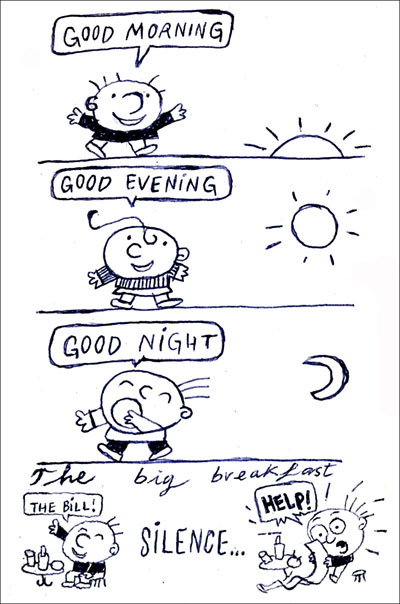 GOOD MORNING
GOOD EVENING
GOOD NIGHT
The big breakfast
THE BILL!
SILENCE...
HELP!